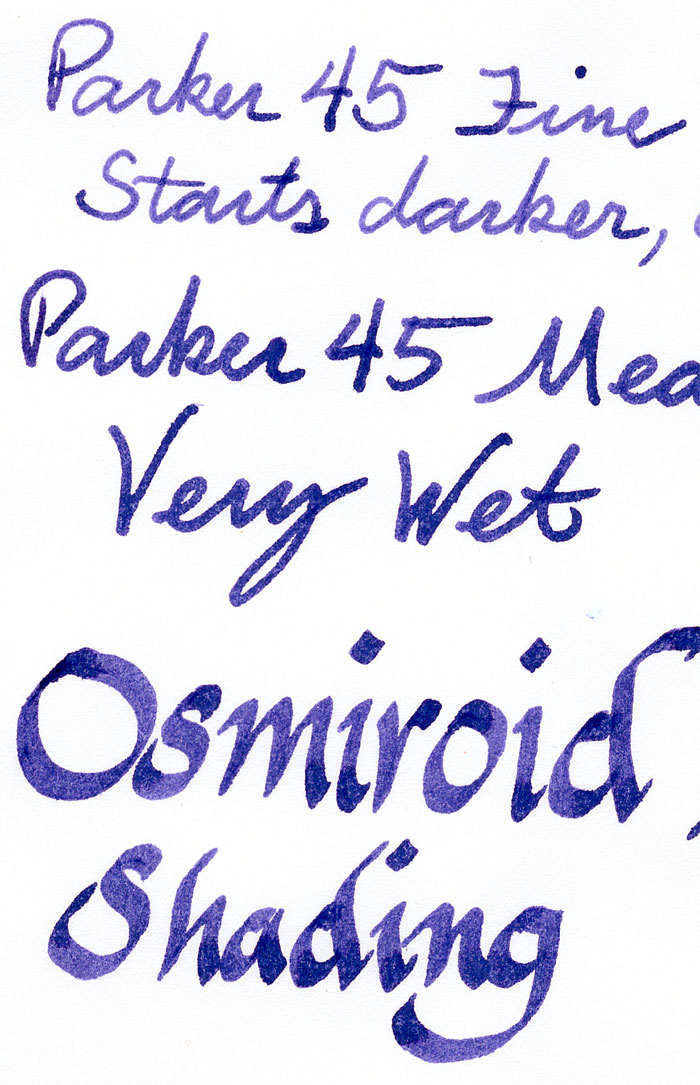 Parker 45 Fine
Starts darker,
Parker 45 Med
Very Wet
Osmiroid
Shading